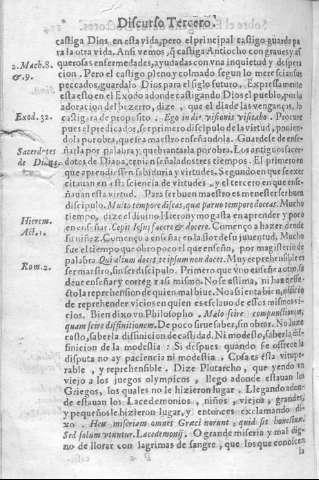 Discurso Tercero.
castiga Dios en esta vida, pero el principal castigo guarda pa
ra la otra vida. Ansi vemos, q̃ castiga Antiocho con graues y as
2. Mach. 8.
& 9.
querosas enfermedades, ayudadas con vna inquietud y despera
cion. Pero el castigo pleno y colmado segun lo merecian sus
peccados, guardalo Dios para el siglo futuro. Expressamente
esta esto en el Exodo adonde castigando Dios el pueblo, por la
adoracion del bezerro, dize, que el dia de las venganças, lo
Exod. 32.
castigara de proposito. Ego in die visionis visitabo. Procure
pues el predicador, ser primero discipulo de la virtud, ponien
dola por obra, que sea maestro enseñandola. Guardese de ense
Sacerdotes
de Diana
ñarla por palabra, y quebrantarla por obra. Los antiguos sacer
dotes de Diana, tenian señalados tres tiempos. El primero en
que aprendiessen sabiduria y virtudes. Segundo en que se exer
citauan en esta sciencia de virtudes, y el tercero en que ense
ñauan esta virtud. Para ser buen maestro es menester ser buen
discipulo. Multo tempore discas, quæ paruo tempore doceas. Mucho
Hierem.
Act. 1.
tiempo, dize el diuino Hieronymo gasta en aprender y poco
en enseñar. Cepit Iesus facere & docere. Començo a hazer desde
su niñez. Començo a enseñar en la flor de su juuentud. Mucho
fue el tiempo que obro poco el que enseño, por magisterio de
Rom. 2.
palabra Qui alium doces te ipsum non doces. Muy reprehensible es
ser maestro, sin ser discipulo. Primero que vno enseñe a otro, se
deue enseñar y corregir a si mismo. No se estima, ni haze res
eto la reprehension de quien mal biue. No assienta bien, officio
de reprehender vicios en quien es esclauo de essos mismos vi
cios. Bien dixo vn Philosopho. Malo scire compunctionem,
quam scire diffinitionem. De poco sirue saber, sin obras. No haze
casto, saber la difinicion de castidad. Ni modesto, saber la di
finicion de la modestia: Si despues quando se offrece la
disputa no ay paciencia ni modestia. Cosa es esta vitupe
rable, y reprehensible. Dize Plutarcho, que yendo vn
viejo a los juegos olympicos, llego adonde estauan los
Griegos, los quales no le hizieron lugar. Llegando adon
de estauan los Lacedemonios, niños, viejos, grandes,
y pequeños le hizieron lugar, y entonces exclamando di
xo. Heu miseriam omnes Græci norunt, quid sit honestum.
Sed solum vtuntur. Lacedemonij. O grande miseria y mal dig
no de llorar con lagrimas de sangre, que los que conocen
la